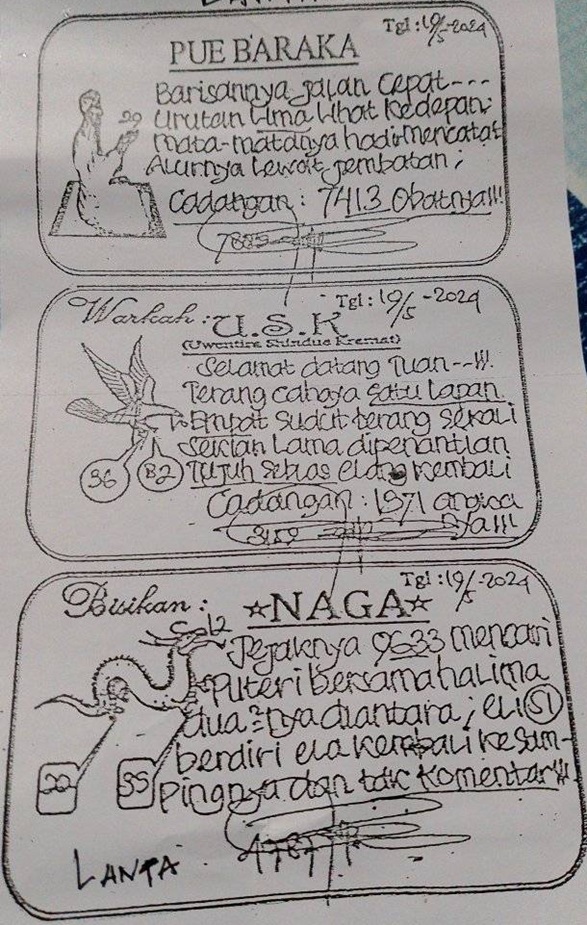 Tgl : 19/5-2024
PUE BARAKA
Barisannya jalan cepat---
Urutan Lima Lihat kedepan;
Mata-matanya hadir mencatat
Alurnya Lewat jembatan;
Cadangan : 7413 Obatnya!!!
Tgl : 19/5-2024
Warkah : U.S.K
(Uwentira Sindue Kramat)
Selamat datang Tuan--!!!
Terang cahaya satu Lapan
Empat sudut terang sekali
Sekian Lama dipenantian
36 82 Tujuh sebLas elang kembali
Cadangan : 1971 angka
nya!!!
3159
Tgl : 19/5-2024
Bisikan : ☆NAGA☆
12 Jejaknya 9633 mencari
Puteri bersama haLima
dua²nya diantara; eLi 51
berdiri ela kembali ke sam-
pingnya dan tak komentar!!!
20 55
4787
LANTA